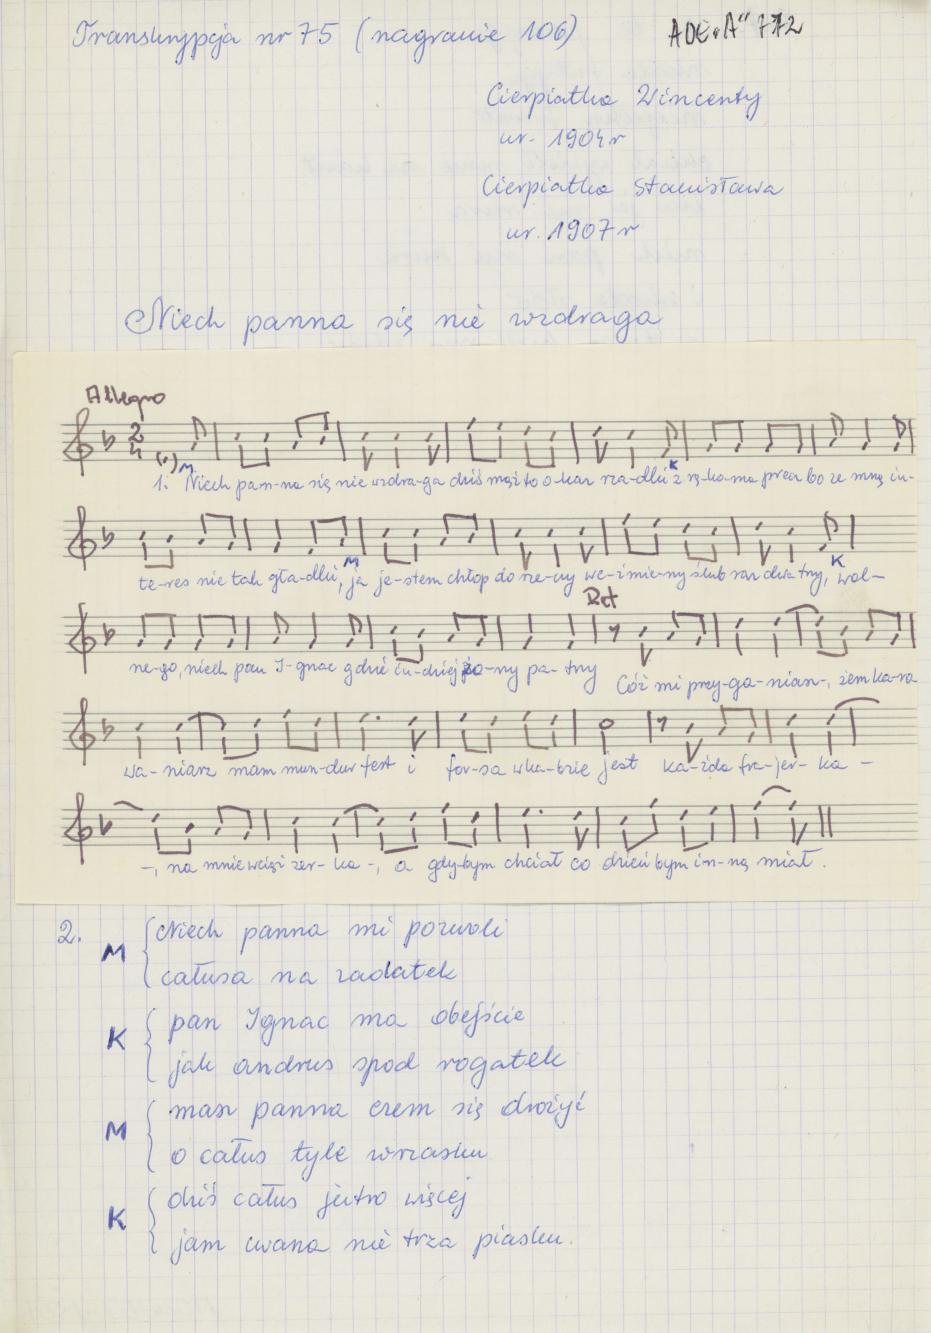 Transkrypcja nr 75 (nagranie 106)
ADE „A" 772
Cierpiatka Wincenty
ur. 1904 r
Cierpiatka Stanisława
ur. 1907 r
Niech panna się nie wzdraga
Allegro
1. M Niech pan-na się nie wzdra-ga dziś mąż to o-kaz rza-dki K z rą-ko-ma precz bo ze mną in-
te-res nie tak gła-dki, M ja je-stem chłop do rze-czy we-ź mie-my ślub raz dwa trzy, K wol-
ne-go, niech pan I-gnac gdzie in-dziej żo-ny pa-trzy
Rit
Cóż mi przy-ga-nian-, żem ka-ra
wa-niarz mam mun-dur fest i for-sa w ka-brie jest ka-żda fra-jer-ka -
-, na mnie wciąż zer-ka -, a gdy-bym chciał co dzień bym in-ną miał.
2.
M Niech panna mi pozwoli
całusa na zadatek
K pan Ignac ma obejście
jak andrus spod rogatek
M masz panna czem się drożyć
o całus tyle wrzasku
K dziś całus jutro więcej
jam cwana nie trza piasku.